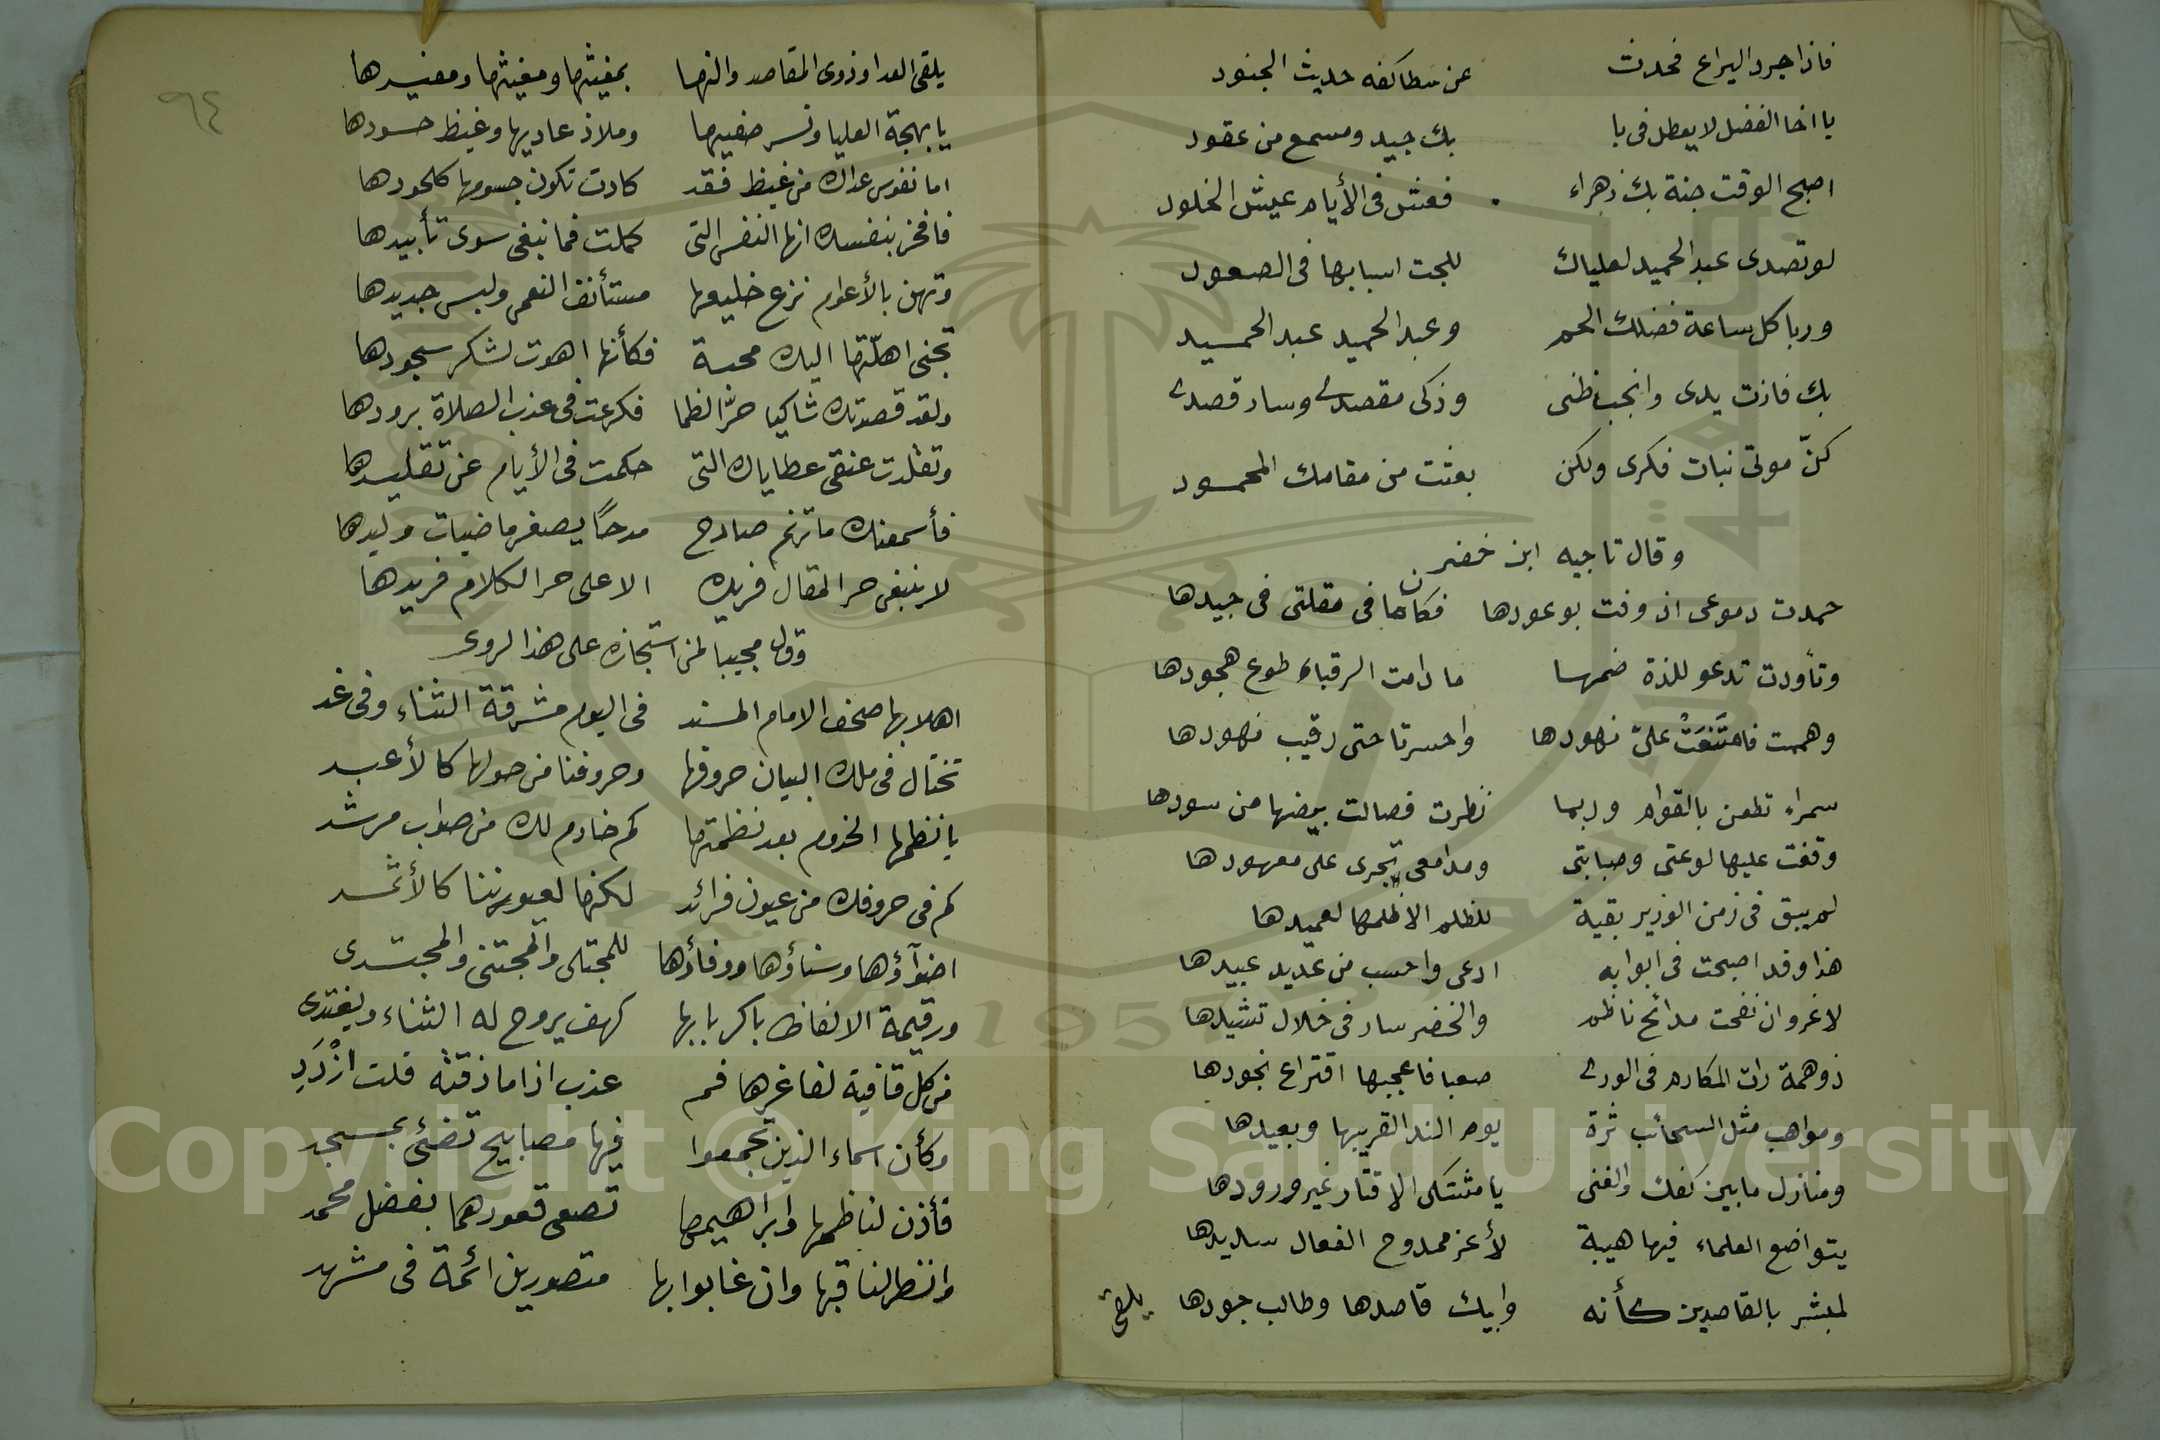 فاذا جرد اليراع فحدث عن سطا كفه حديث الجنود
يا اخا الفضل لا يعطل فى با بك جيد ومسمع من عقود
اصبح الوقت جنة بك زهراء فعش فى الأيام عيش الخلود
لو تصدى عبد الحميد لعلياك للجت اسبابها فى الصعود
وربا كل ساعة فضلك الجم وعبد الحميد عبد الحميد
بك فازت يدى وانجب ظنى وزكى مقصدى وساد قصيدى
كنّ موتى نبات فكرى ولكن بعثت من مقامك المحمود
وقال تاجيه ابن خضر
حمدت دموعى اذ وفت بوعودها فكان ما فى مقلتى فى جيدها
وتأودت تدعو للذة ضمها ما دامت الرقباء طوع هجودها
وهممت فامتنعت علىّ نهودها واحسرتا حتى رقيب نهودها
سمراء تطعن بالقوام وربما نظرت فصالت بيضها من سودها
وقفت عليها لوعتى وصبابتى ومدامعى تجرى على معهودها
لم يبق فى زمن الوزير بقية للظلم الا ظلمها لعميدها
هذا وقد اصبحت فى ابوابه ادعى واحسب من عديد عبيدها
لا غرو ان نفحت مدائح ناظم والخضر سار فى خلال تشيدها
ذو همة رات المكارم فى الورى صعبا فاعجبها اقتراع نجودها
ومواهب مثل السحائب ثرة يوم الندا لقريبها وبعيدها
ومنازل ما بين كفك والغنى يا مشتكى الاقتار غير ورودها
يتواضع العلماء فيها هيبة لأعز ممدوح الفعال سديدها
لمبشر بالقاصدين كأنه وابيك قاصدها وطالب جودها
يلقى
٩٤
يلقى العدا وذوى المقاصد والنها بمغيثها ومغيثها ومفيدها
يا بهجة العليا ونسر صفيها وملاذ عاديها وغيظ حسودها
اما نفوس عداك من غيظ فقد كادت تكون جسومها كلحودها
فافخر بنفسك انها النفس التى كملت فما نبغى سوى تأبيدها
وتهن بالأعوام نزع خليعها مستأنف النعمى ولبس جديدها
تحنى اهلّتها اليك محبة فكأنها اهوت لشكر سجودها
ولقد قصدتك شاكيا حرّ الظما فكرعت فى عذب الصلاة برودها
وتقلدت عنقى عطاياك التى حكمت فى الأيام عن تقليدها
فأسمعنك ما ترنم صادح مدحًا يصغر ماضيات وليدها
لا ينبغى حر المقال فريده الا على حر الكلام فريدها
وقال مجيبا لمن استجازه على هذا الروى
اهلا بها صحف الامام المسند فى اليوم مشرقة الثناء وفى غد
تختال فى ملك البيان حروفها وحروفنا من حولها كالأعبد
يا نظمها المخدوم بعد نظمتها كم خادم لك من صواب مرشد
كم فى حروفك من عيون فرائد لكنها لعيوننا كالأثمد
اضوآؤها وسناؤها ووفاؤها للمجتلى والمجتنى والمجتدى
ورقيمة الالفاظ باكر بابها كهف يروح له الثناء ويغتدى
من كل قافية لفاغرها فم عذب اذا ما ذقته قلت ازْدَدِ
وكأن اسماء الذين تجمعوا فيها مصابيح تضئى بمسجد
فأذن لناظمها وابراهيمها تصفى قعودهما بفضل محمد
وانظر لنا قبها وان غابوا بها متصورين ائمة فى مشهد
1957
Copyright © King Saud University